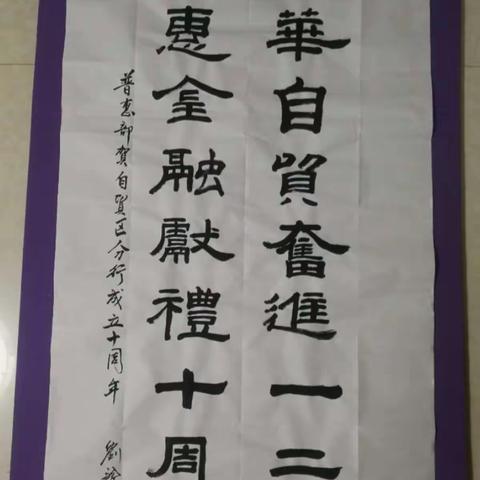 華自貿奮進一二
惠金融獻禮十周
普惠部賀自貿区分行成立十周年 劉